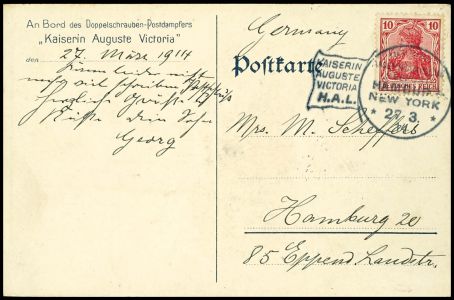 An Bord des Doppelschrauben-Postdampfers
„Kaiserin Auguste Victoria"
den 27. März 1914
herzliche Grüße &
Küsse dein Sohn
Georg
Germany
Postkarte
KAISERIN
AUGUSTE
VICTORIA
H.A.L.
10 10
HAMBURG
NEW YORK
* 27 3. *
Mrs. M. Scheffers
Hamburg 20
85 Eppend. Landstr.